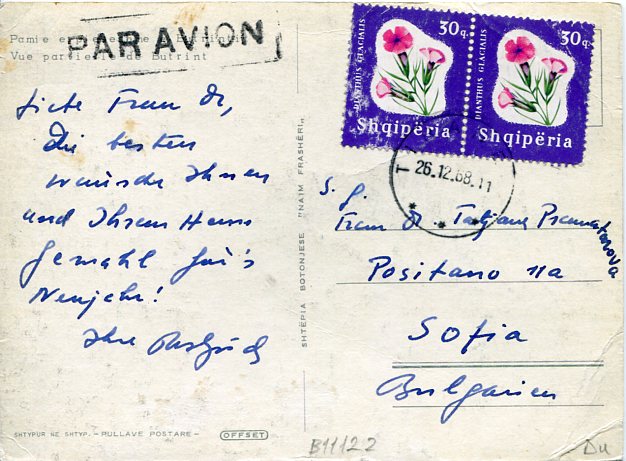 Pamje
Vue partielle de Butrint
PAR AVION
30q
DIANTHUS GLACIALIS
Shqipëria
30q
DIANTHUS GLACIALIS
Shqipëria
26.12.68.11
T
Frau Dr,
die besten
wünsche Ihnen
und Ihrem Herrn
Gemahl für's
Neujahr!
Ihre
SHTËPIA BOTONJESE "NAIM FRASHËRI"
S. g.
Frau Dr. Tatjana
Positano 11a
Sofia
Bulgarien
SHTYPUR NE SHTYP. - PULLAVE POSTARE -
OFFSET
B11122
Du